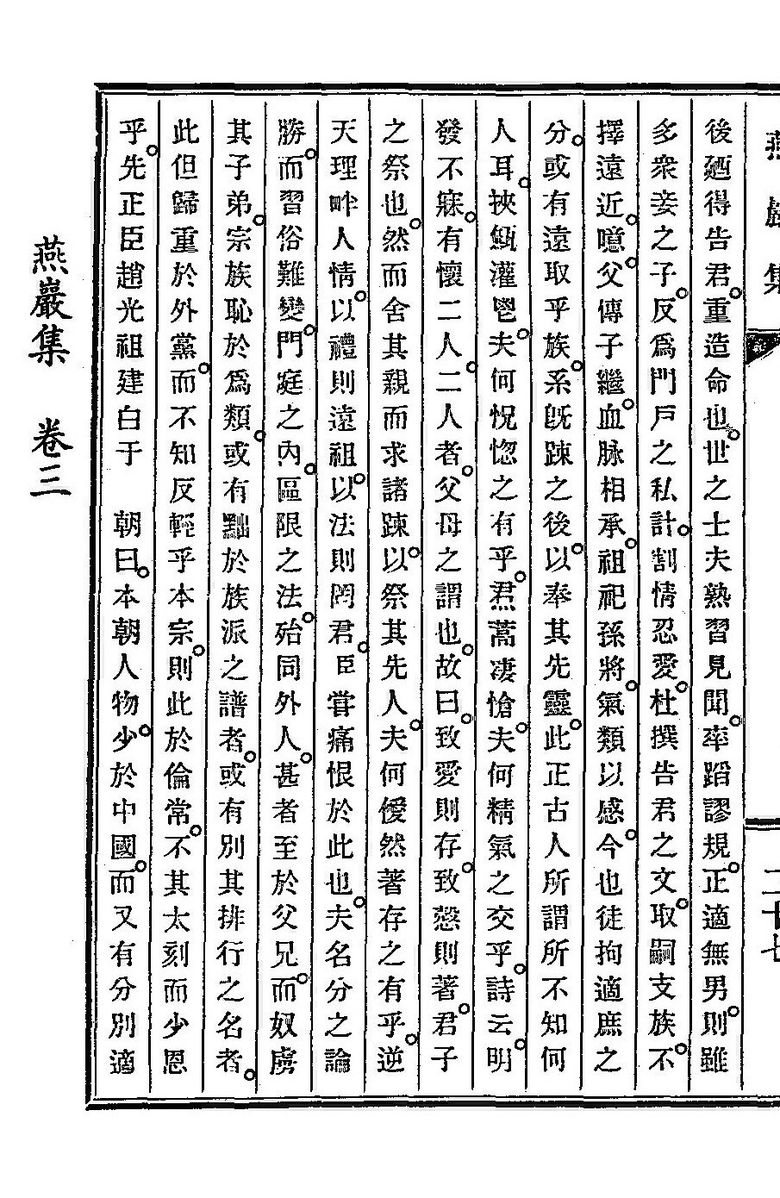 燕巖集
二十七
後廼得告君。重造命也。世之士夫熟習見聞。率蹈謬規。正適無男。則雖
多衆妾之子。反爲門戶之私計。割情忍愛。杜撰告君之文。取嗣支族。不
擇遠近。噫。父傳子繼。血脉相承。祖祀孫將。氣類以感。今也徒拘適庶之
分。或有遠取乎族。系旣踈之後。以奉其先靈。此正古人所謂所不知何
人耳。挾瓻灌鬯。夫何怳惚之有乎。焄蒿凄愴。夫何精氣之交乎。詩云。明
發不寐。有懷二人。二人者。父母之謂也。故曰。致愛則存。致愨則著。君子
之祭也。然而舍其親而求諸踈。以祭其先人。夫何僾然著存之有乎。逆
天理畔人情。以禮則遠祖。以法則罔君。臣甞痛恨於此也。夫名分之論
勝。而習俗難變。門庭之內。區限之法。殆同外人。甚者至於父兄。而奴虜
其子弟。宗族恥於爲類。或有黜於族派之譜者。或有別其排行之名者。
此但歸重於外黨。而不知反輕乎本宗。則此於倫常。不其太刻而少恩
乎。先正臣趙光祖建白于 朝曰。本朝人物。少於中國。而又有分別適
燕巖集 卷三